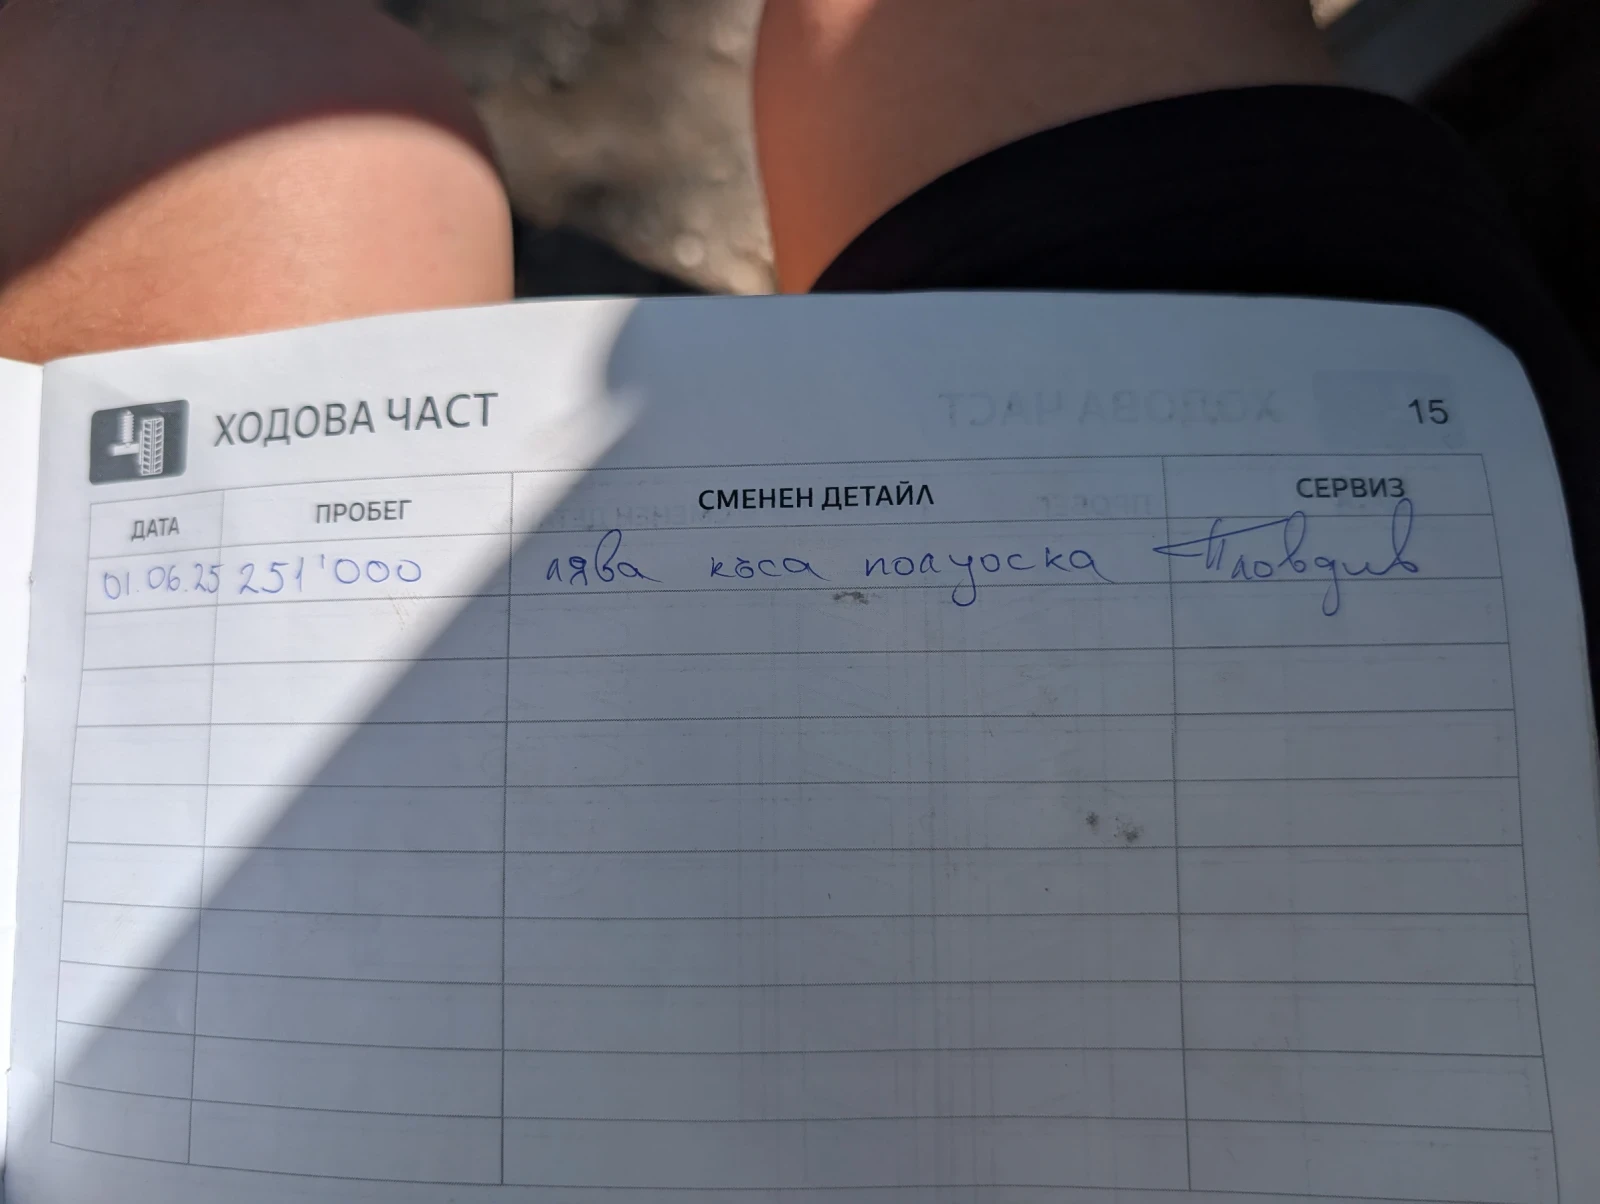 ХОДОВА ЧАСТ
15
ДАТА ПРОБЕГ СМЕНЕН ДЕТАЙЛ СЕРВИЗ
01.06.25 251'000 лява къса полуоска Пловдив